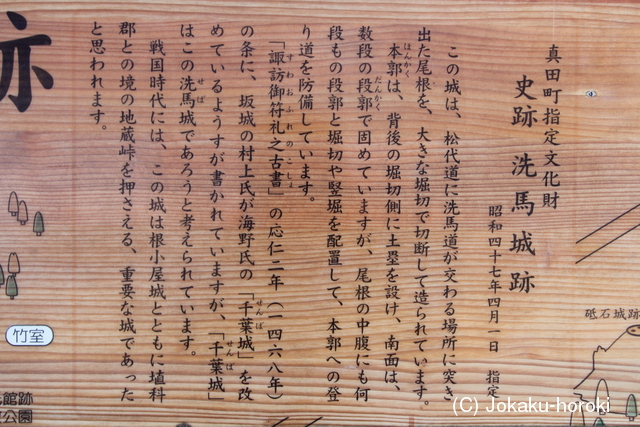 真田町指定文化財
史跡 洗馬城跡
昭和四十七年四月一日 指定
この城は、松代道に洗馬道が交わる場所に突き
出た尾根を、大きな堀切で切断して造られています。
本郭は、背後の堀切側に土塁を設け、南面は、
数段の段郭で固めていますが、尾根の中腹にも何
段もの段郭と堀切や竪堀を配置して、本郭への登
り道を防備しています。
「諏訪御符礼之古書」の応仁二年(一四六八年)
の条に、坂城の村上氏が海野氏の「千葉城」を改
めているようすが書かれていますが、「千葉城」
はこの洗馬城であろうと考えられています。
戦国時代には、この城は根小屋城とともに埴科
郡との境の地蔵峠を押さえる、重要な城であった
と思われます。
跡
竹室
砥石城跡
館跡
公園
(C) Jokaku-horoki